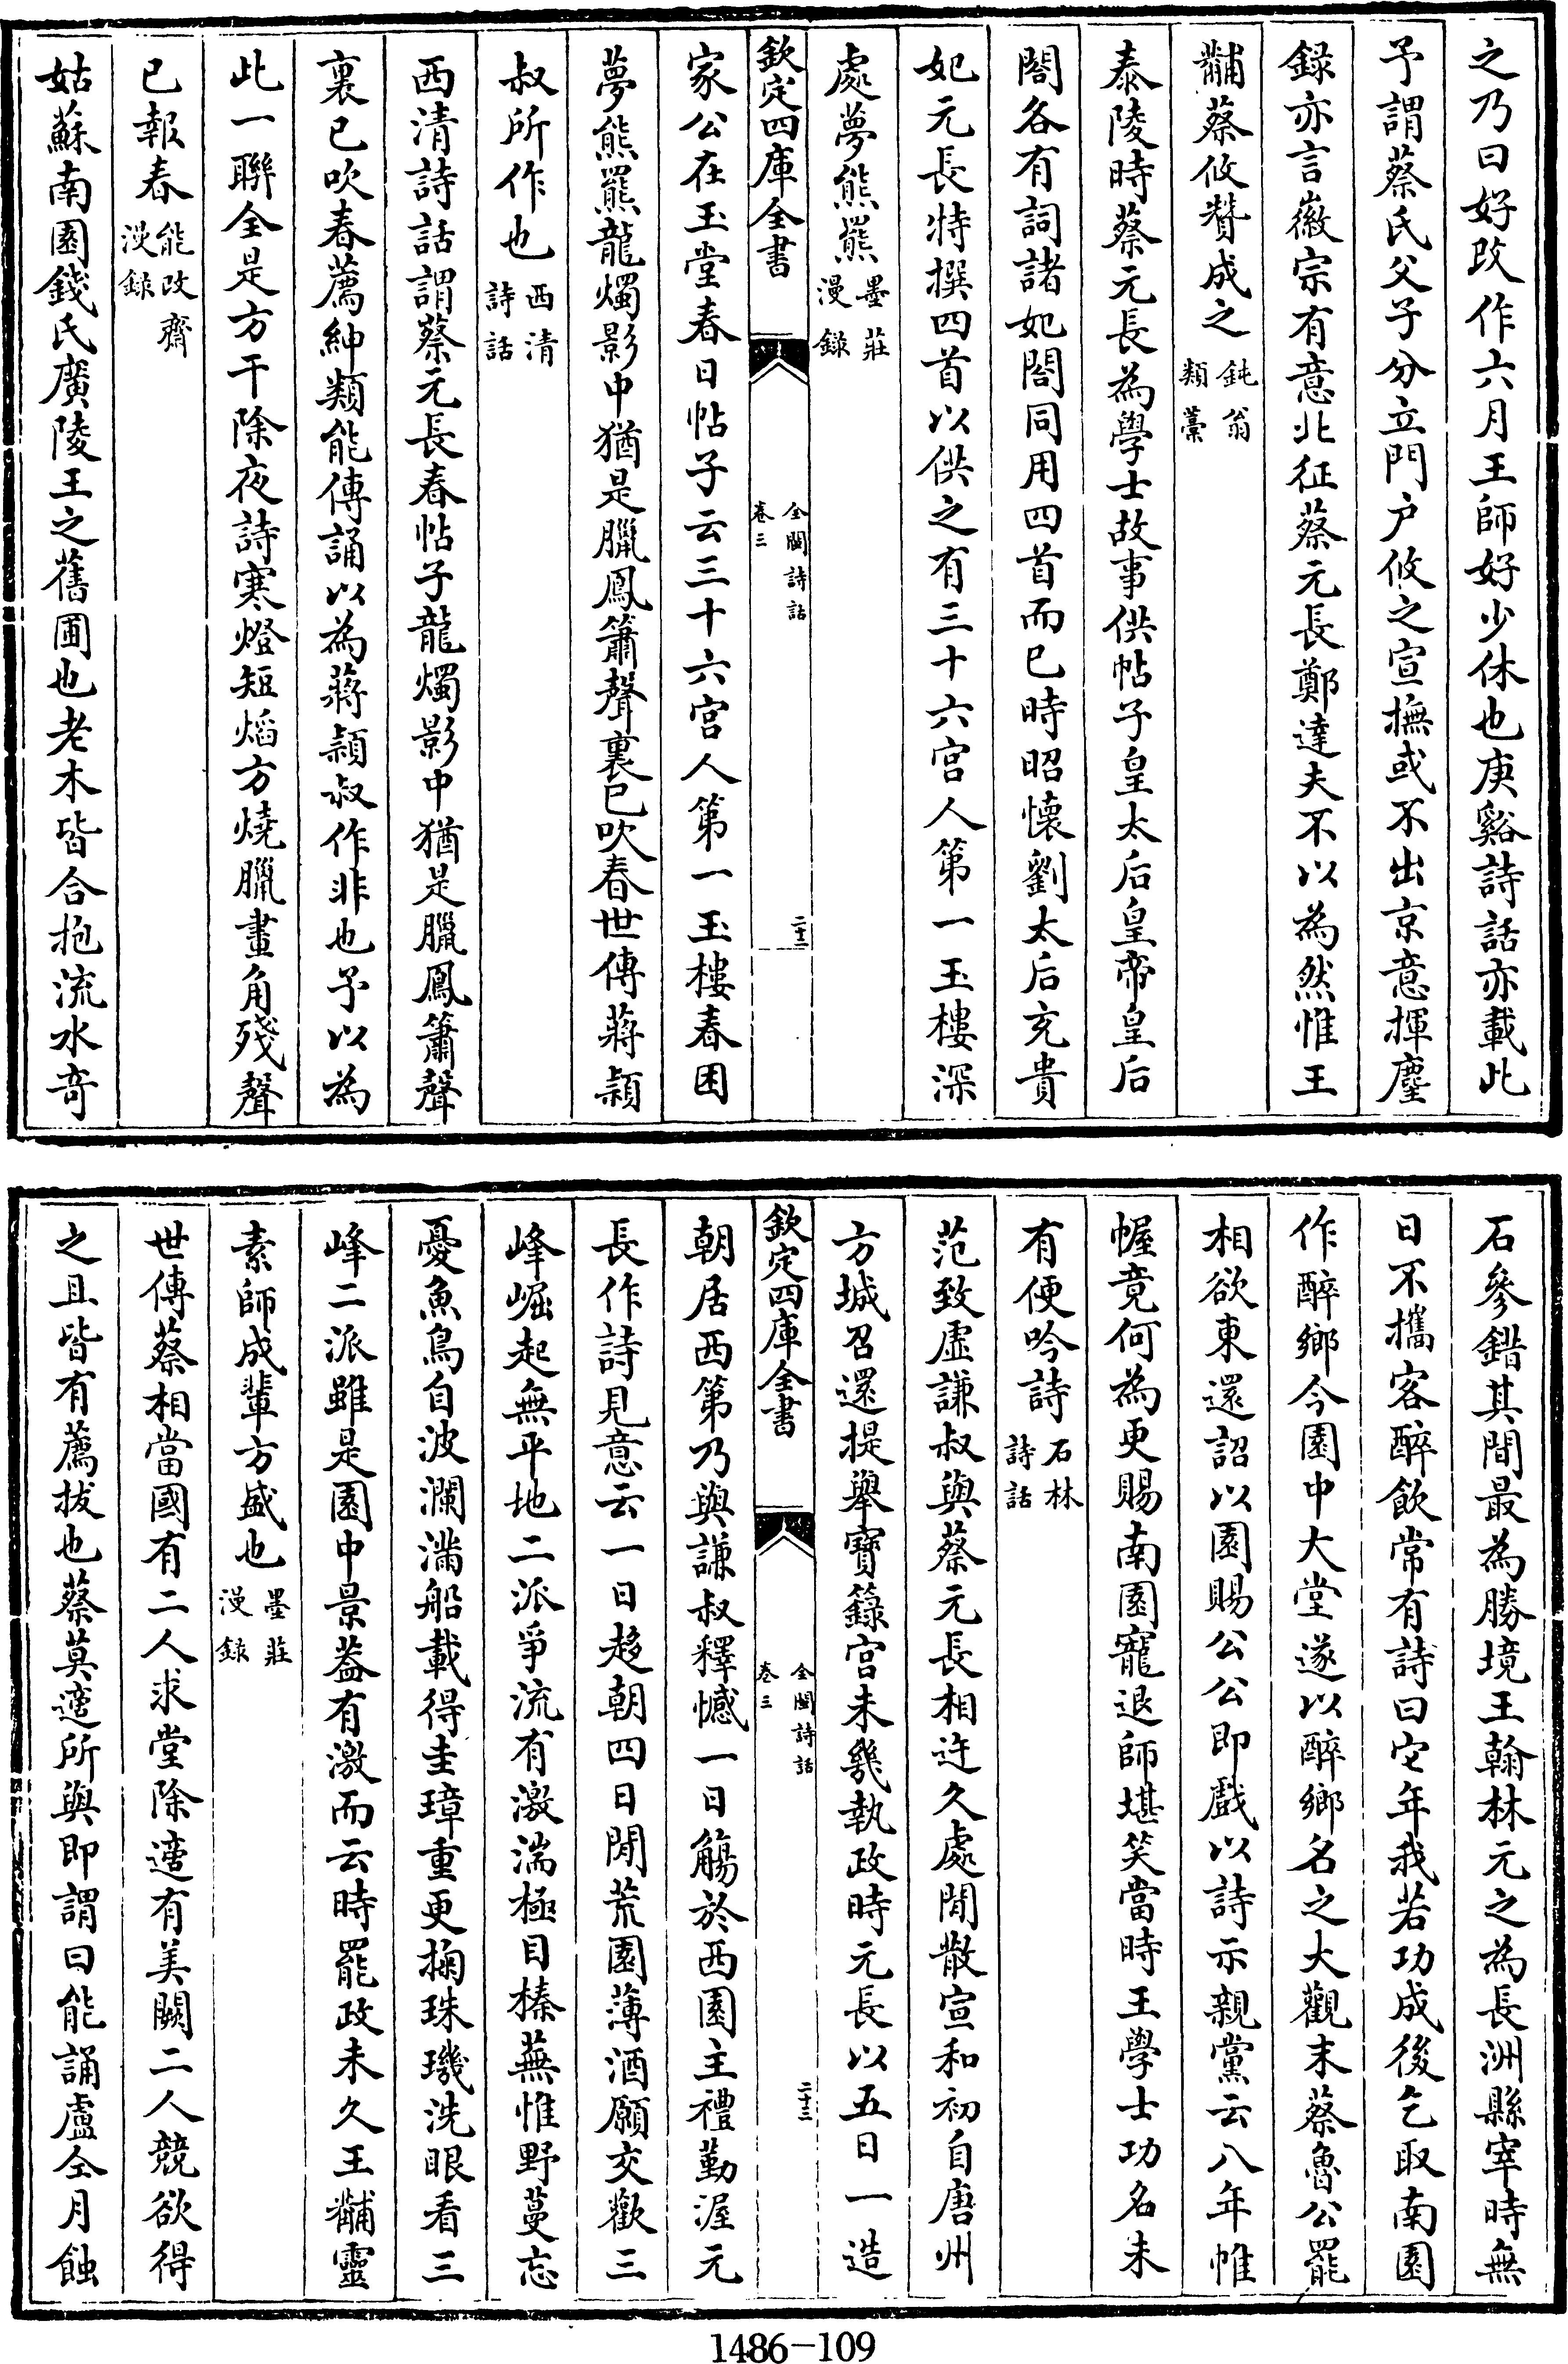 之乃曰好改作六月王師好少休也庚谿詩話亦載此
予謂蔡氏父子分立門户攸之宣撫或不出京意揮麈
録亦言徽宗有意北征蔡元長鄭達夫不以為然惟王
黼蔡攸贊成之鈍翁類藁
泰陵時蔡元長為學士故事供帖子皇太后皇帝皇后
閤各有詞諸妃閤同用四首而已時昭懷劉太后充貴
妃元長特撰四首以供之有三十六宫人第一玉樓深
處夢熊羆墨莊漫錄
欽定四庫全書
全閩詩話
卷三
二十二
家公在玉堂春日帖子云三十六宫人第一玉樓春困
夢熊羆龍燭影中猶是臘鳳簫聲裏已吹春世傳蔣潁
叔所作也西清詩話
西清詩話謂蔡元長春帖子龍燭影中猶是臘鳳簫聲
裏已吹春薦紳類能傳誦以為蔣潁叔作非也予以為
此一聯全是方干除夜詩寒燈短熖方燒臘畫角殘聲
已報春能改齋漫録
姑蘇南園錢氏廣陵王之舊圃也老木皆合抱流水奇
石參錯其間最為勝境王翰林元之為長洲縣宰時無
日不攜客醉飲常有詩曰它年我若功成後乞取南園
作醉鄉今園中大堂遂以醉鄉名之大觀末蔡魯公罷
相欲東還詔以園賜公公即戲以詩示親黨云八年帷
幄竟何為更賜南園寵退師堪笑當時王學士功名未
有便吟詩石林詩話
范致虛謙叔與蔡元長相迕久處閒散宣和初自唐州
方城召還提舉寶籙宫未幾執政時元長以五日一造
欽定四庫全書
全閩詩話
卷三
二十三
朝居西第乃與謙叔釋憾一日觴於西園主禮勤渥元
長作詩見意云一日趍朝四日閒荒園薄酒願交歡三
峰崛起無平地二派爭流有激湍極目榛蕪惟野蔓忘
憂魚鳥自波瀾滿船載得圭璋重更掬珠璣洗眼看三
峰二派雖是園中景葢有激而云時罷政未久王黼靈
素師成輩方盛也墨莊漫録
世傳蔡相當國有二人求堂除適有美闕二人競欲得
之且皆有薦拔也蔡莫適所與即謂曰能誦盧仝月蝕
1486-109